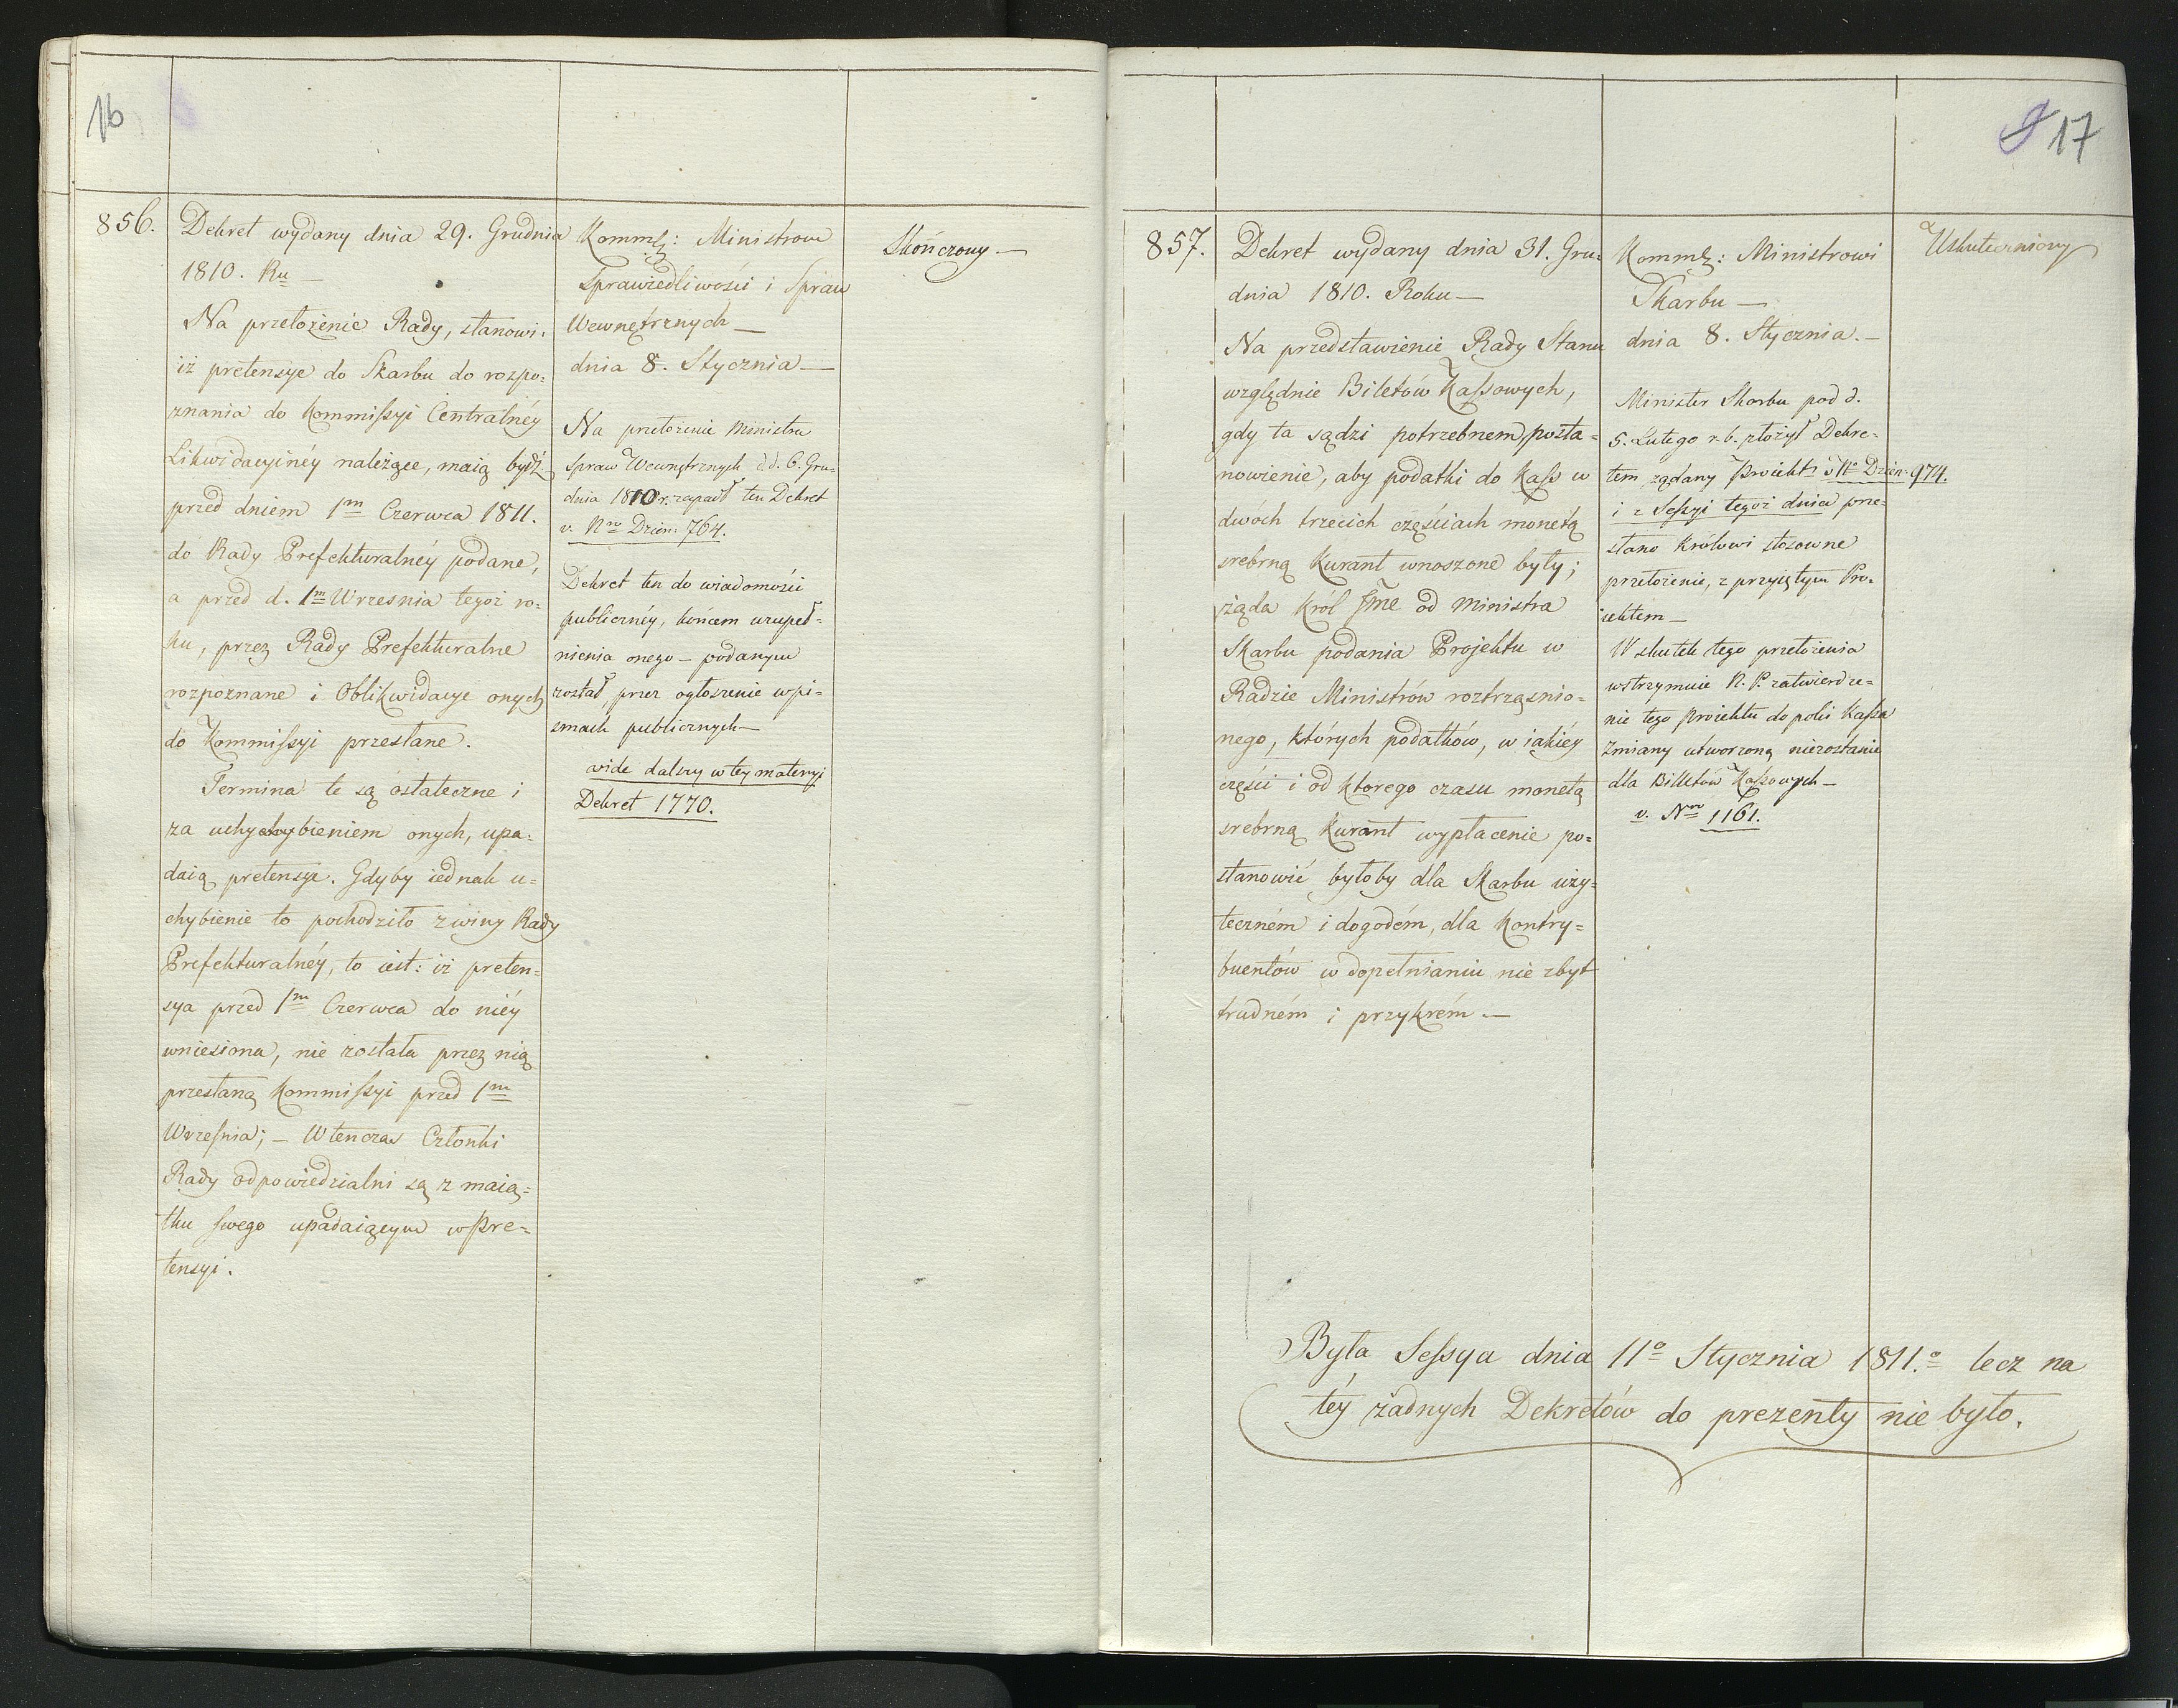 16
856.
Dekret wydany dnia 29. Grudnia
1810. Ru —
Na przełożenie Rady, stanowi.
iż pretensye do Skarbu do rozpo=
znania do Kommissyi Centralnéy
Likwidacyinéy należące, maią bydź
przed dniem 1m Czerwca 1811.
do Rady Prefekturalnéy podane,
a przed d. 1m Wrzesnia tegoż ro=
ku, przez Rady Prefekturalne
rozpoznane i Oblikwidacye onych
do Kommissyi przesłane.
Termina te są ostateczne i
za uchybieniem onych, upa=
daią pretensye. Gdyby iednak u=
chybienie to pochodziło z winy Rady
Prefekturalnéy, to iest: iż preten=
sya przed 1m Czerwca do niéy
wniesiona, nie została przez nią
przesłaną Kommissyi przed 1m
Września; — Wtenczas Członki
Rady odpowiedzialni są z maią=
tku swego upadaiącym w Pre=
tensyi.
Kommk: Ministrom
Sprawiedliwości i Spraw
Wewnętrznych —
dnia 8. Stycznia —
Na przełożenie Ministra
Spraw Wewnętrznych d.d. 6. Gru=
dnia 1810 r. zapadł ten Dekret
v. Nro Dzien: 764.
Dekret ten do wiadomości
publicznéy, końcem uzupeł=
nienia onego — podanym
został, przez ogłoszenie w pi=
smach publicznych —
vide dalszy w tey materyi
Dekret 1770.
Skończony —
17
857.
Dekret wydany dnia 31. Gru=
dnia 1810. Roku —
Na przedstawienie Rady Stanu
względnie Biletów Kassowych,
gdy ta sądzi potrzebnem posta=
nowienie, aby podatki do Kass w
dwóch trzecich częściach monetą
srebrną Kurant wnoszone były;
żąda Król Jme od Ministra
Skarbu podania Projektu w
Radzie Ministrów roztrząśnio=
nego, których podatków, w iakiéy
części i od ktorego czasu monetą
srebrną Kurant wypłacenie po=
stanowić byłoby dla Skarbu uży=
teczném i dogodém, dla Kontry=
buentów w dopełnianiu nie zbyt
trudném i przykrém. —
Kommk: Ministrowi
Skarbu —
dnia 8. Stycznia. —
Minister Skarbu pod d.
5. Lutego r. b. złożył Dekre=
tem żądany Proiekt v No Dzien: 974.
i z Sessyi tegoż dnia prze=
słano Królowi stosowne
przełożenie, z przyiętym Pro=
iektem —
W skutek tego przełożenia
wstrzymuie N. P. zatwierdze=
nie tego Proiektu dopóki Kassa
Zmiany utworzoną niezostanie
dla Billetów Kassowych —
v. Nro 1161.
Uskuteczniony
Była Sessya dnia 11o Stycznia 1811.o lecz na
téy żadnych Dekretów do prezenty nie było.